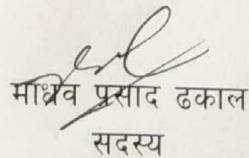 माधव प्रसाद ढकाल
सदस्य